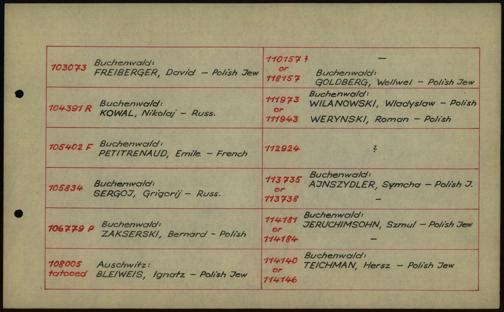 103073 Buchenwald:
FREIBERGER, David – Polish Jew
104391 R Buchenwald:
KOWAL, Nikolaj – Russ.
105402 F Buchenwald:
PETITRENAUD, Emile – French
105834 Buchenwald:
SERGOJ, Grigorij – Russ.
106779 P Buchenwald:
ZAKSERSKI, Bernard – Polish
108005 Auschwitz:
tatooed BLEIWEIS, Ignatz – Polish Jew
110157 ? –
or
118157 Buchenwald:
GOLDBERG, Wellwel – Polish Jew
111973 Buchenwald:
WILANOWSKI, Wladyslaw – Polish
or
111943 WERYNSKI, Roman – Polish
112924 ?
113735 Buchenwald:
or AJNSZYDLER, Symcha – Polish J.
113738 –
114181 Buchenwald:
or JERUCHIMSOHN, Szmul – Polish Jew
114184 –
114140 Buchenwald:
or TEICHMAN, Hersz – Polish Jew
114146